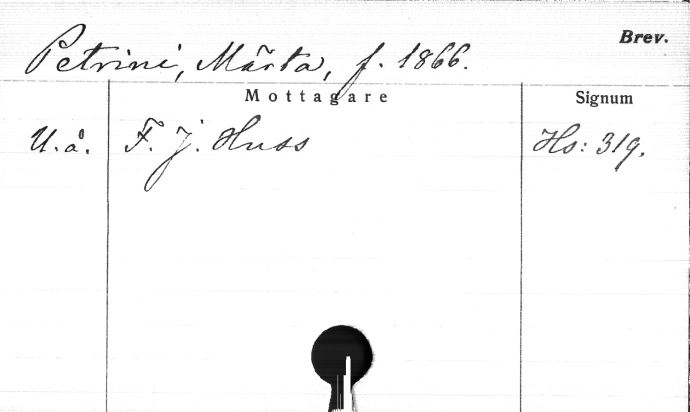 Brev.
Petrini, Märta, f. 1866.
Mottagare Signum
U.å. F. J. Huss Hs: 319.